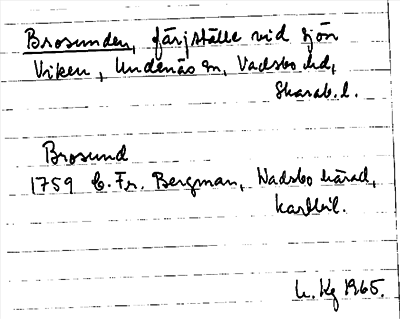 Brosunden, färjställe vid sjön
Viken, Undenäs sn, Vadsbo hd,
Skarab. l.
Brosund
1759 C. Fr. Bergman, Wadsbo härad,
kartbil.
L. Kg 1965.